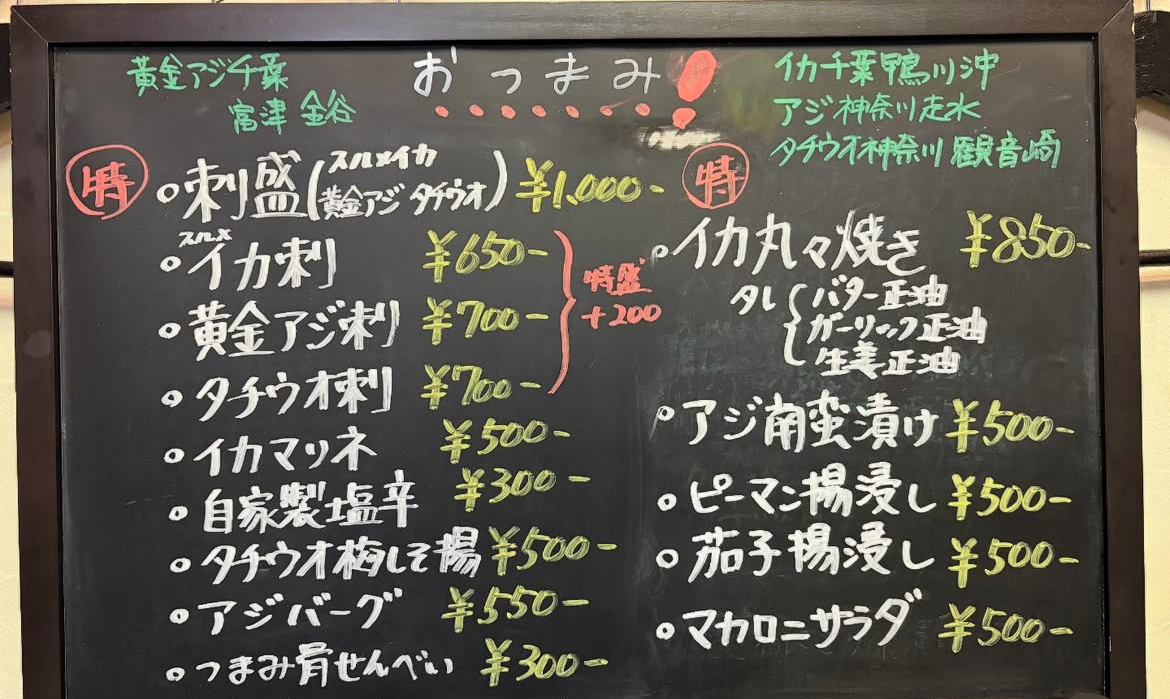 黄金アジ千葉
富津 金谷
おつまみ!
イカ千葉鴨川沖
アジ神奈川走水
タチウオ神奈川観音崎
特 ○刺盛(スルメイカ 黄金アジ タチウオ) ¥1.000-
○スルメイカ刺 ¥650-
○黄金アジ刺 ¥700-
○タチウオ刺 ¥700-
特盛
+200
○イカマリネ ¥500-
○自家製塩辛 ¥300-
○タチウオ梅しそ揚 ¥500-
○アジバーグ ¥550-
○つまみ骨せんべい ¥300-
特
○イカ丸々焼き ¥850-
タレ{バター正油
ガーリック正油
生姜正油
○アジ南蛮漬け ¥500-
○ピーマン揚浸し ¥500-
○茄子揚浸し ¥500-
○マカロニサラダ ¥500-